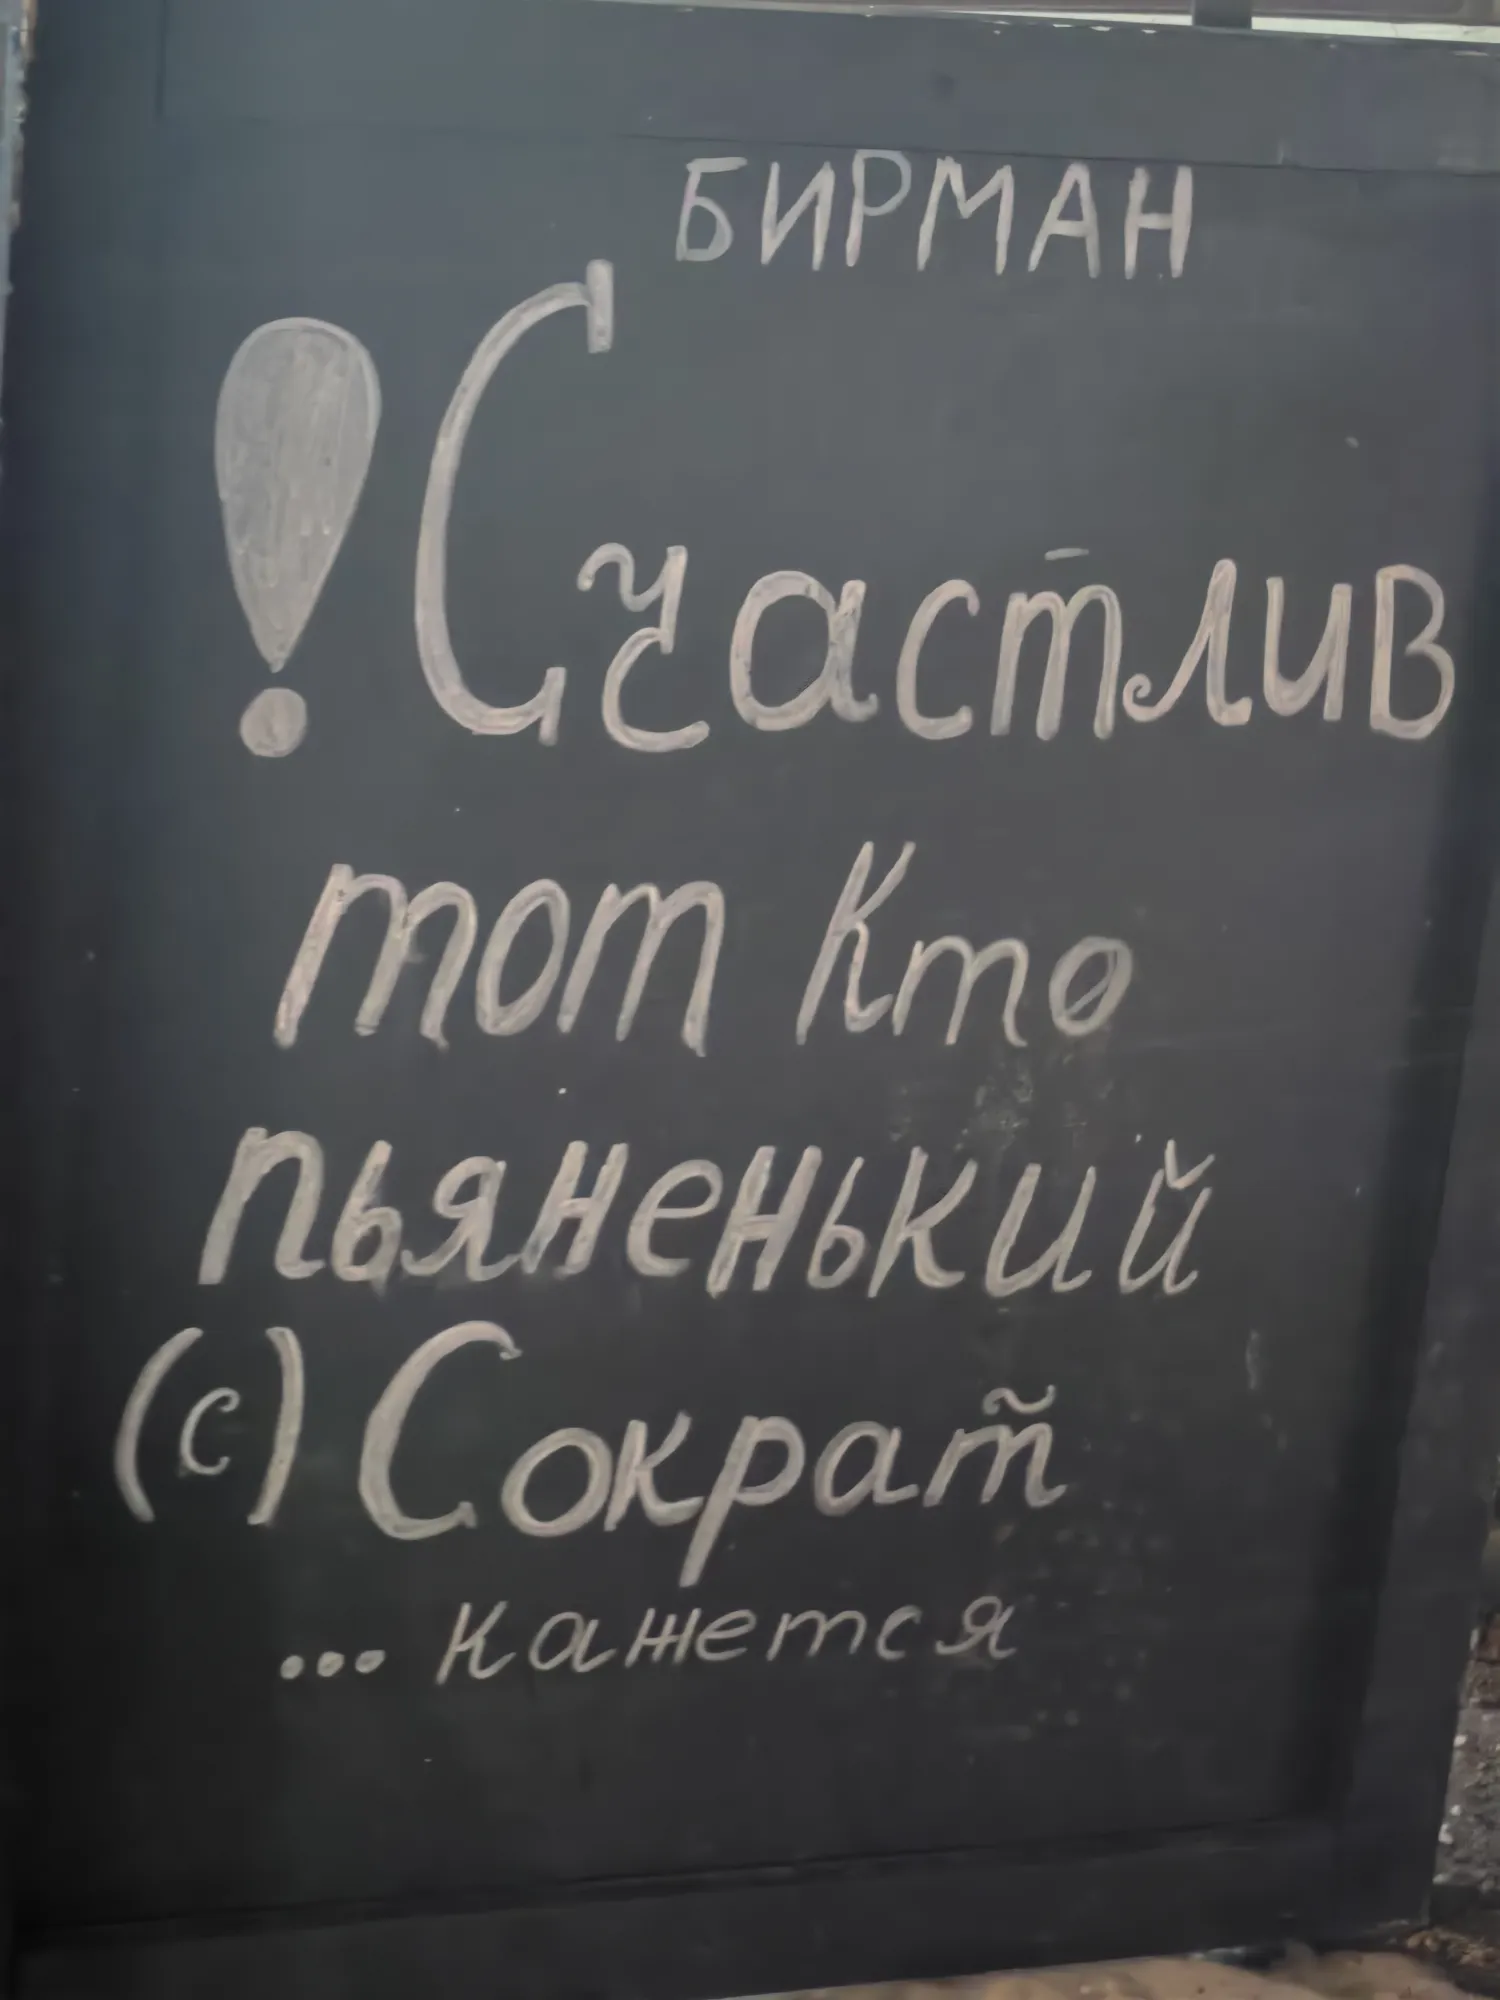 БИРМАН
! Счастлив
тот кто
пьяненький
(с) Сократ
... кажется